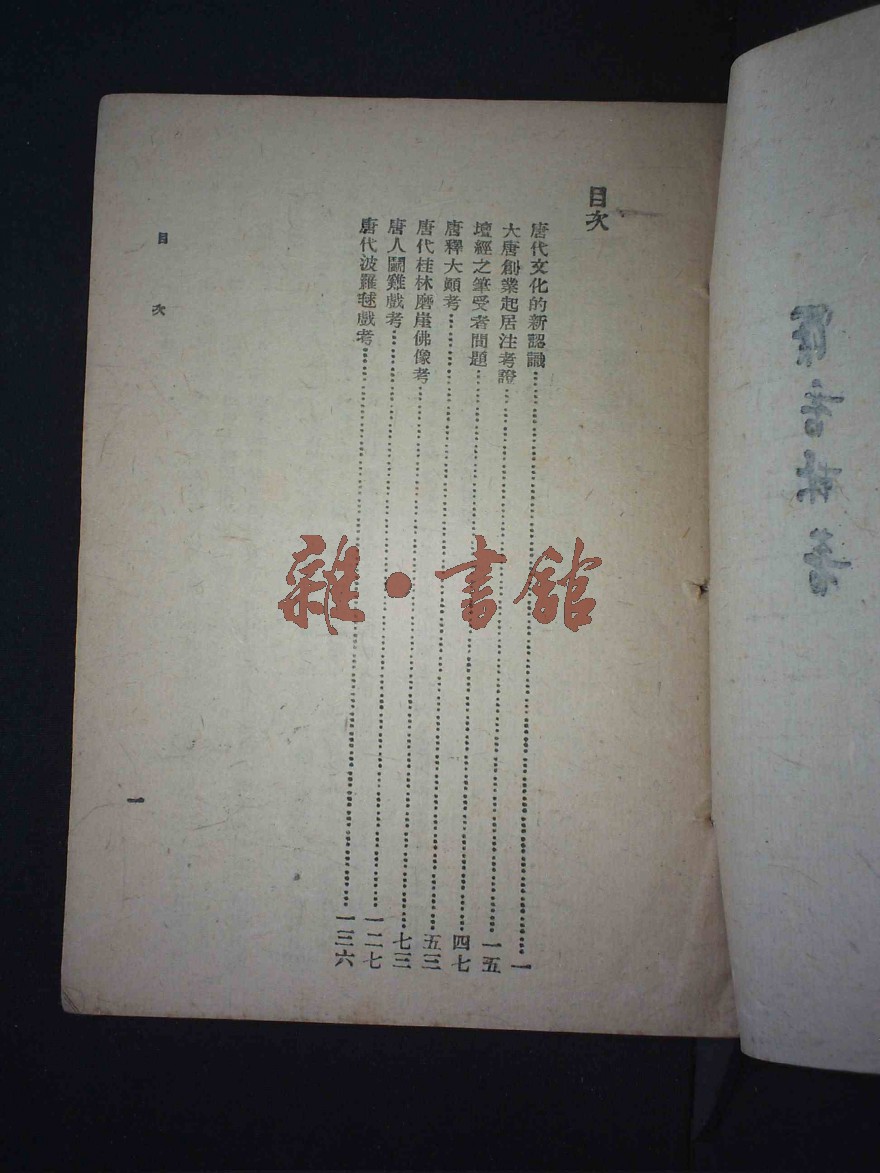 目次
唐代文化的新認識……一
大唐創業起居注考證……一五
壇經之筆受者問題……四七
唐釋大顚考……五三
唐代桂林磨崖佛像考……七三
唐人鬭雞戲考……一二七
唐代波羅毬戲考……一三六
目次
一
雜·書館